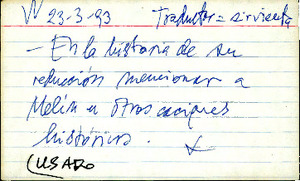 V 23-3-93 Traductor = sirvienta
- En la historia de su
reducción mencionar a
Melín u otros caciques
históricos.
(USADO